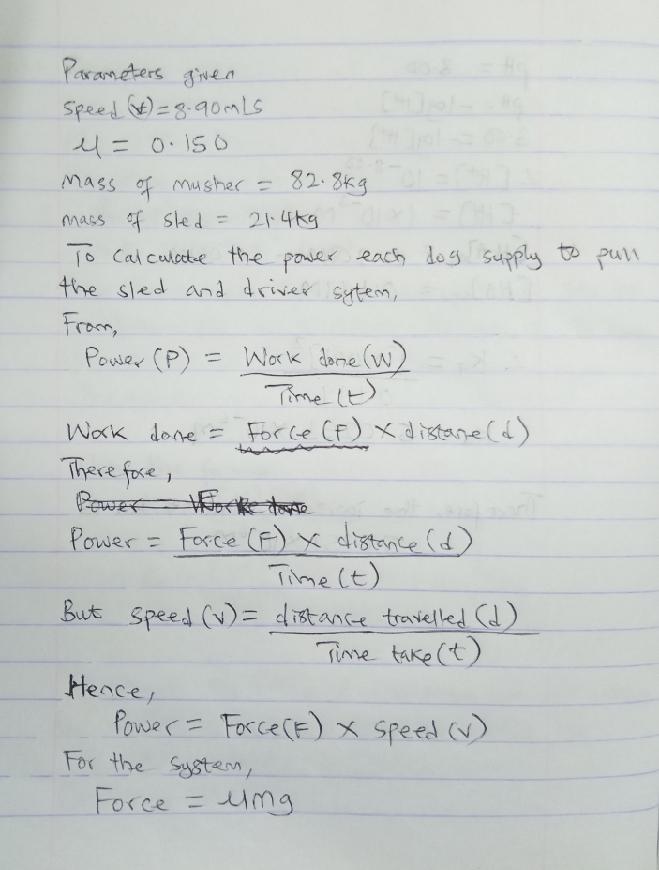 Parameters given
Speed (v) = 8.90m/s
μ = 0.150
Mass of musher = 82.8kg
mass of sled = 21.4kg
To Calculate the power each dog supply to pull
the sled and driver sytem,
From,
Power (P) = Work done (W)
Time (t)
Work done = Force (F) X distane (d)
Therefore,
Power = Force (F) X distance (d)
Time (t)
But speed (v) = distance travelled (d)
Time take (t)
Hence,
Power = Force (F) X speed (v)
For the system,
Force = μmg